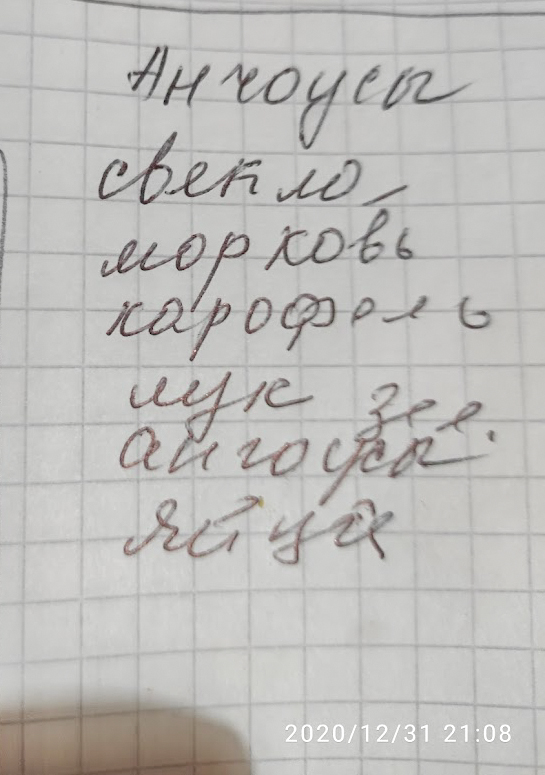 Анчоусы
свекло
морковь
карофель
лук зее
ангоусы.
яйца
2020/12/31 21:08